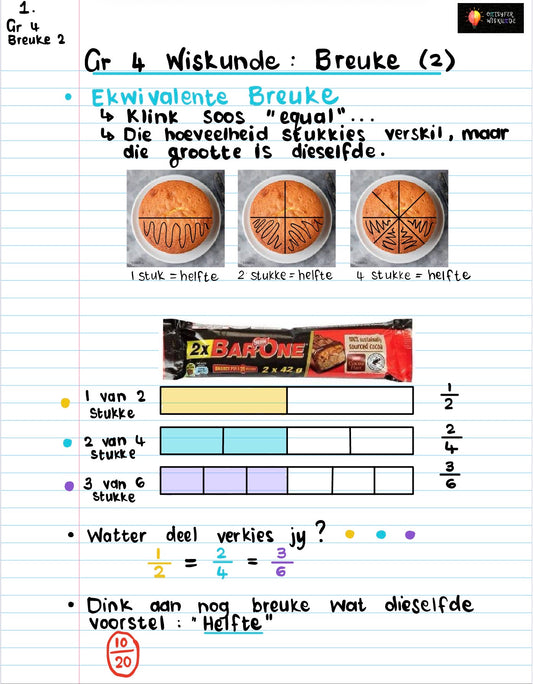 1.
Gr 4
Breuke 2
ONTSYFER
WISKUNDE
Gr 4 Wiskunde : Breuke (2)
• Ekwivalente Breuke
↳ Klink soos "equal"...
↳ Die hoeveelheid stukkies verskil, maar
die grootte is dieselfde.
1 stuk = helfte
2 stukke = helfte
4 stukke = helfte
2x BAR•ONE
Nestlé
2 x 42 g
100% sustainably
sourced cocoa
1 van 2
stukke
1/2
2 van 4
stukke
2/4
3 van 6
stukke
3/6
• Watter deel verkies jy?
1/2 = 2/4 = 3/6
• Dink aan nog breuke wat dieselfde
voorstel : "Helfte"
10/20